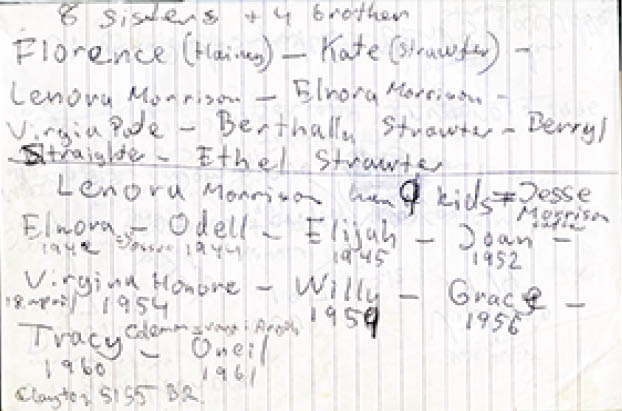 8 sisters + 4 brother
Florence (Haines) – Kate (Strawter) –
Lenora Morrison – Elnora Morrison –
Virgia Pode – Berthally Strawter – Derryl
Straighter – Ethel Strawter
Lenora Morrison 9 kids = Jesse
Morrison
Elnora – Odell – Elijah – Joan –
1942 1944 1945 1952
Virgina Honore – Willy – Grace –
18. april 1954 1959 1956
Tracy – Oneil
1960 1961
Clayton 5155 B2.